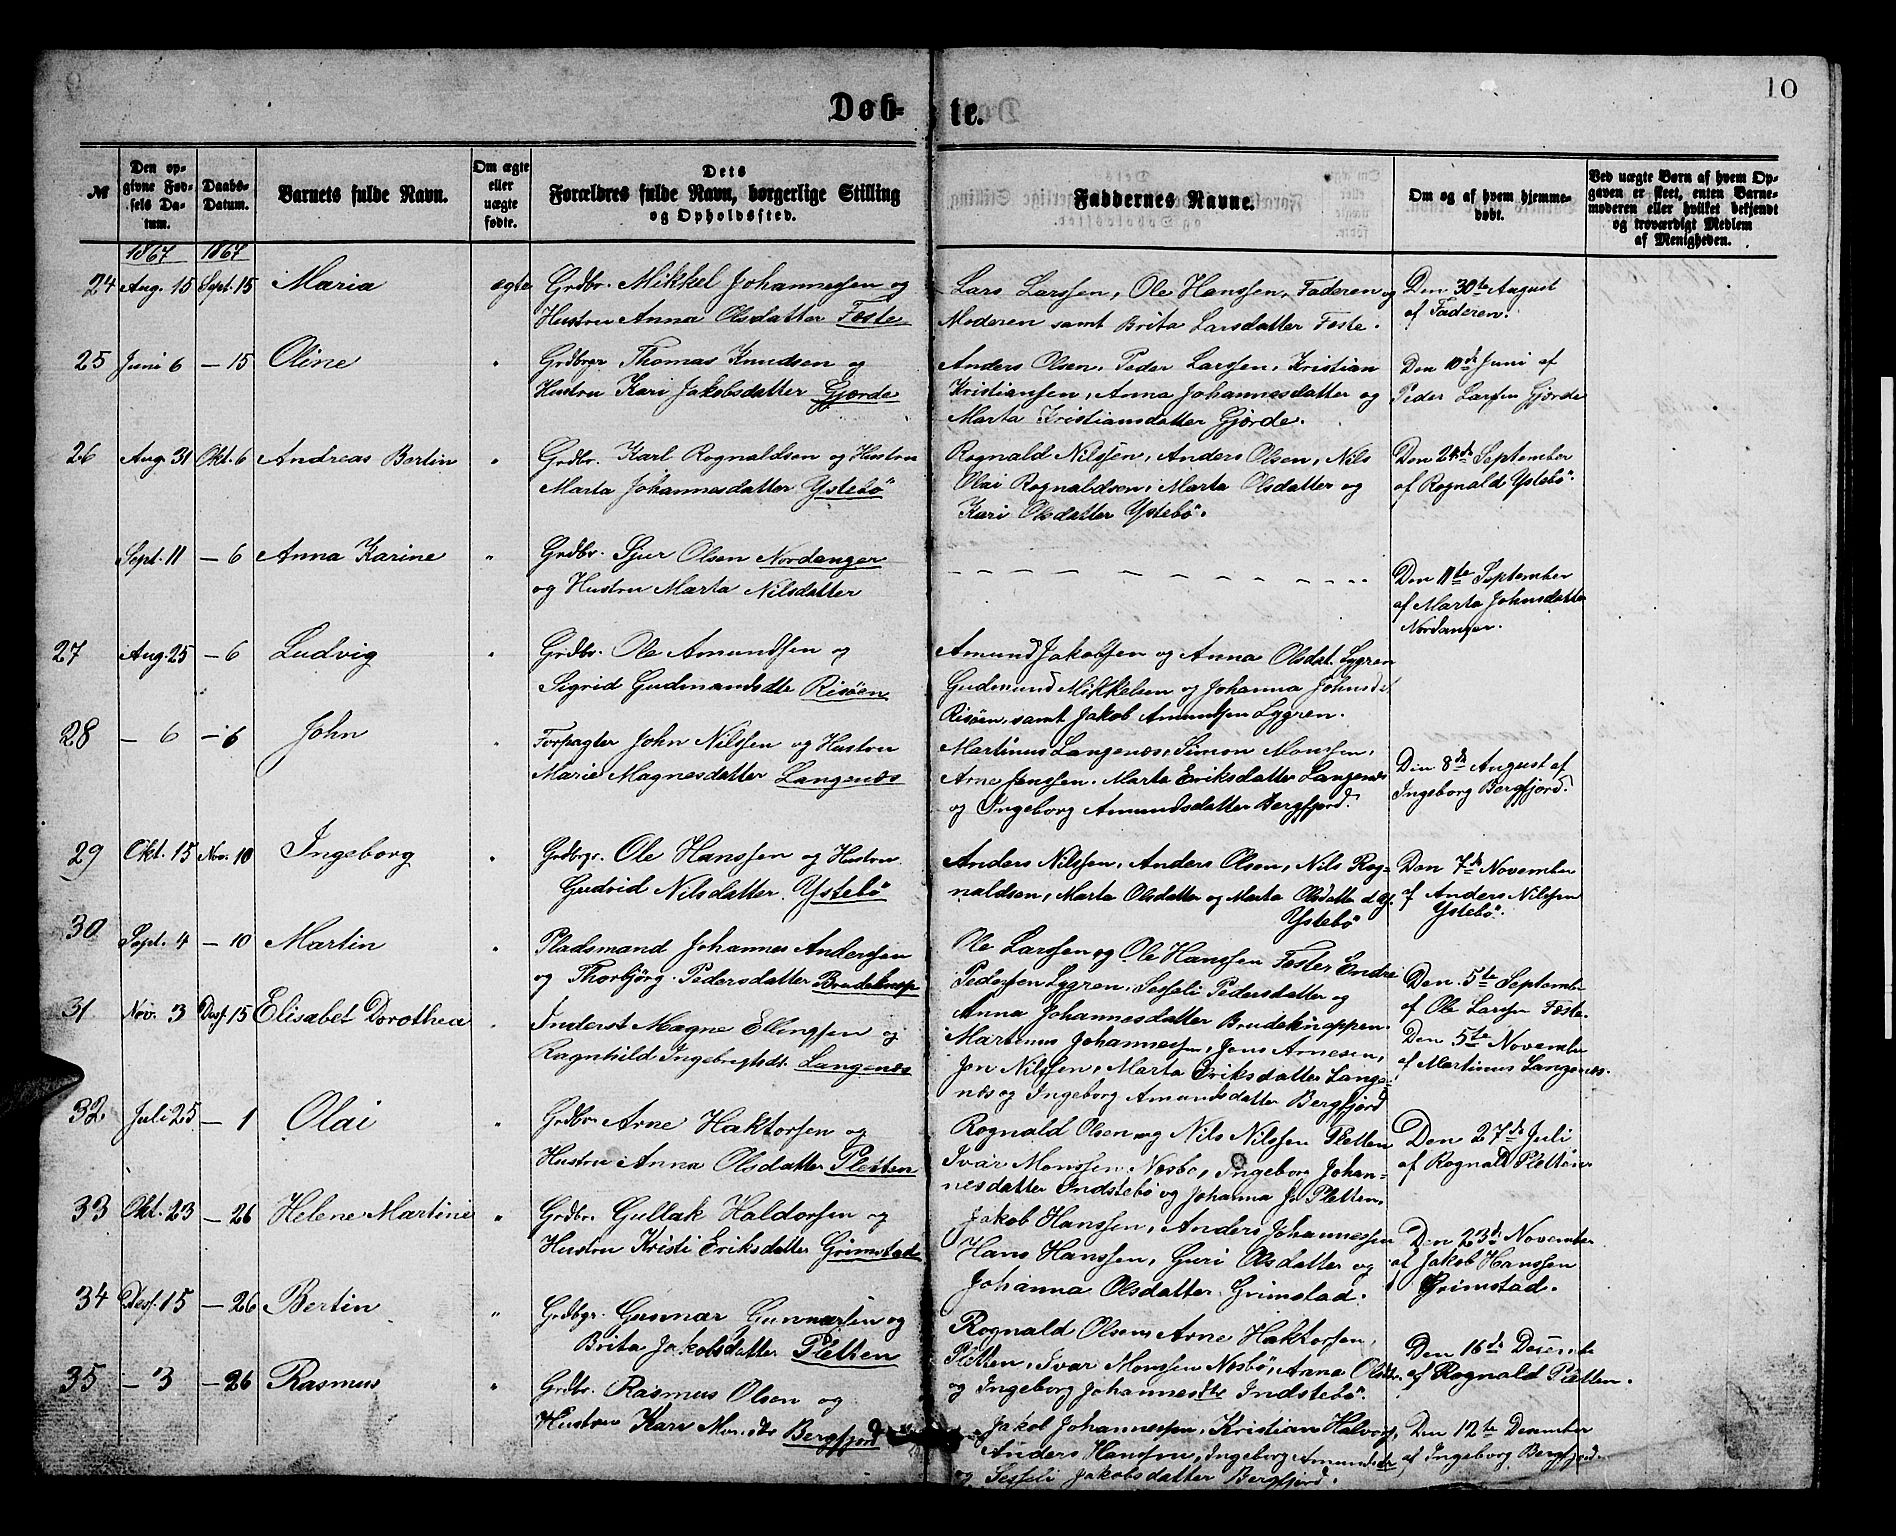 10
Døb-te.
№
Den opgivne Fødsels Datum.
Daabs-Datum.
Barnets fulde Navn.
Om ægte eller uægte fødte.
Dets Forældres fulde Navn, borgerlige Stilling og Opholdssted.
Faddernes Navne.
Om og af hvem hjemmedøbt.
Ved uægte Børn af hvem Opgaven er skeet, enten Barnemoderen eller hvilket bekjendt og troværdigt Medlem af Menigheden.
1867 1867
24 Aug. 15 Sept. 15 Maria ægte Grdbr. Mikkel Johannessen og
Hustru Anna Olsdatter Foste
Lars Larssen, Ole Hanssen, Faderen og
Moderen samt Brita Larsdatter Foste.
Den 30te August
af Faderen.
25 Juni 6 — 15 Oline " Grdbgr Thomas Knudsen og
Hustru Kari Jakobsdatter Gjørde
Anders Olsen, Peder Larssen, Kristian
Kristiansen, Anna Johannesdatter og
Marta Kristiansdatter Gjørde.
Den 10de Juni af
Peder Larssen Gjørde
26 Aug. 31 Okt. 6 Andreas Bertin " Grdbr. Karl Rognaldsen og Hustru
Marta Johannesdatter Ystebö
Rognald Nilssen, Anders Olsen, Nils
Olai Rognaldsen, Marta Olsdatter og
Kari Olsdatter Ystebö.
Den 24de September
af Rognald Ystebö.
Sept. 11 — 6 Anna Karine " Grdbr. Sjur Olsen Nordanger
og Hustru Marta Nilsdatter
— — — — — — — — — —
Den 11te September
af Marta Johnsdatter
Nordanger.
27 Aug. 25 — 6 Ludvig " Grdbr. Ole Amundsen og
Sigrid Gudmundsdtr Risöen
Amund Jakobsen og Anna Olsdat. Lygren
Gudmund Mikkelsen og Johanna Johnsd.
Risöen, samt Jakob Amundsen Lygren.
28 — 6 — 6 John " Forpagter John Nilssen og Hustru
Marie Magnesdatter Langenæs
Martinus Langenæs, Simon Monssen,
Arne Jenssen, Marta Eriksdatter Langenæs
og Ingeborg Amundsdatter Bergfjord.
Den 8de August af
Ingeborg Bergfjord.
29 Okt. 15 Nov. 10 Ingeborg " Grdbgr. Ole Hanssen og Hustru
Gudvid Nilsdatter Ystebö
Anders Nilssen, Anders Olsen, Nils Rog-
naldsen, Marta Olsdatter og Marta Olsdatter d.y.
Ystebö
Den 7de November
af Anders Nilssen
Ystebö.
30 Sept. 4 — 10 Martin " Pladsmand Johannes Anderssen
og Thorbjörg Pedersdatter Brudeknap
Ole Larssen og Ole Hanssen Foste, Endre
Pederssen Lygren, Sesseli Pedersdatter og
Anna Johannesdatter Brudeknappen.
Den 5te Septembe
af Ole Larssen Foste.
31 Nov. 3 Desf. 15 Elisabet Dorothea " Inderst Magne Ellingsen og
Ragnhild Ingebrigtsdt. Langenæs
Martinus Johannessen, Jens Arnesen,
Jon Nilssen, Marta Eriksdatter Lange-
næs og Ingeborg Amundsdatter Bergfjord
Den 5te Novembe
af Martinus Langenæs.
32 Juli 25 — 1 Olai " Grdbr. Arne Haktorsen og
Hustru Anna Olsdatter Pletten
Rognald Olsen og Nils Nilssen Pletten
Ivar Monssen Næsbø, Ingeborg Johan-
nesdatter Indstebö og Johanna Js Pletten,
Den 27de Juli
af Rognald Pletten
33 Okt. 23 — 26 Helene Martine " Grdbr. Gullak Haldorsen og
Hustru Kristi Eriksdatter Grimstad
Jakob Hanssen, Anders Johannessen
Hans Hanssen, Guri Olsdatter og
Johanna Olsdatter Grimstad.
Den 23de November
af Jakob Hanssen
Grimstad.
34 Desf. 15 — 26 Bertin " Grdbgr. Gunnar Gunnarsen og
Brita Jakobsdatter Pletten
Rognald Olsen, Arne Haktorsen,
Pletten, Ivar Monssen Næsbö, Anna Olsdtr.
og Ingeborg Johannesdtr Indstebö.
Den 16de Decembe
af Rognald Pletten.
35 — 3 — 26 Rasmus " Grdbr. Rasmus Olsen og
Hustru Kari Monsdtr Bergfjord
Jakob Johannessen, Kristian Halvors,
Anders Hanssen, Ingeborg Amundsdtr
og Sesseli Jakobsdatter Bergfjord.
Den 12te December
af Ingeborg Bergfjord.